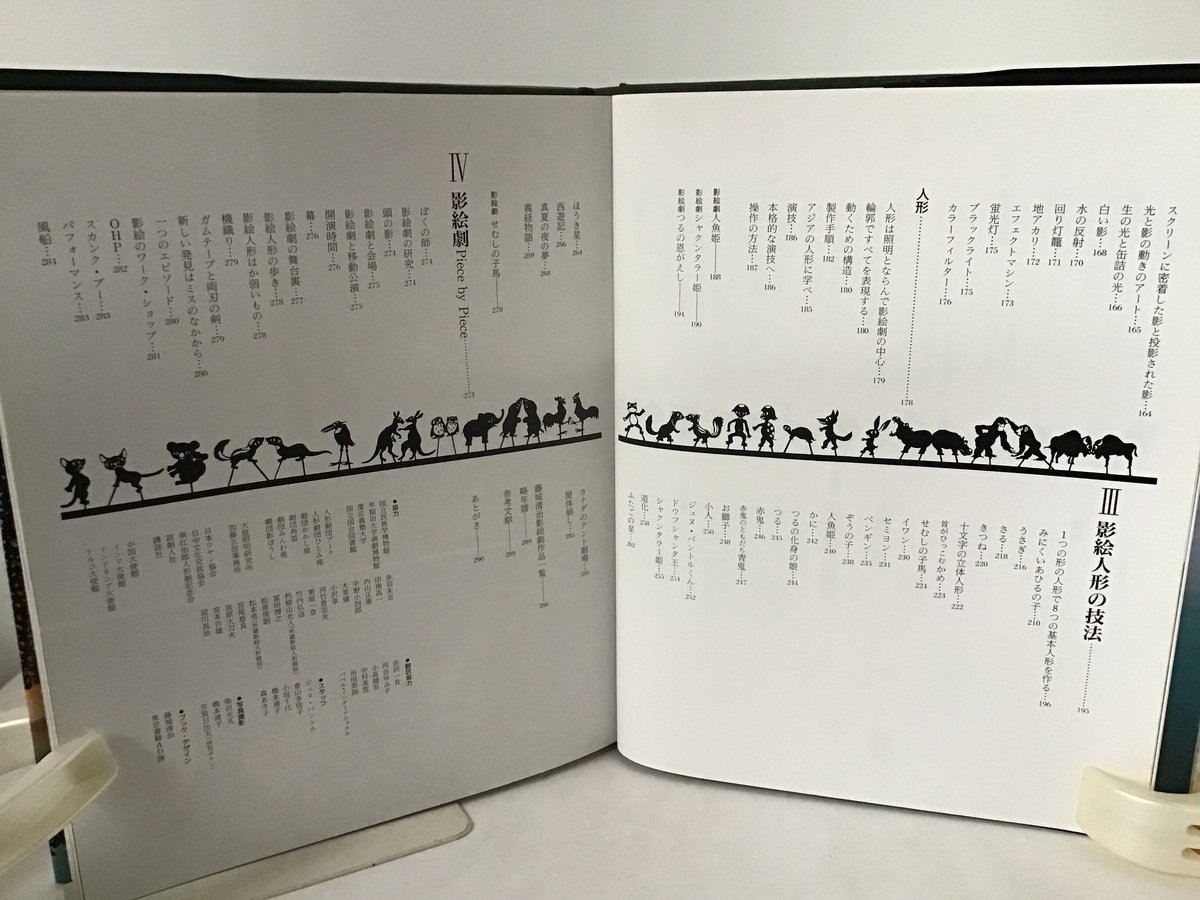 スクリーンに密着した影と投影された影…164
光と影の動きのアート…165
生の光と缶詰の光…166
白い影…168
水の反射…170
回り灯籠…171
地アカリ…172
エフェクトマシン…173
蛍光灯…175
ブラックライト…175
カラーフィルター…176
人形…178
人形は照明とならんで影絵劇の中心…179
輪郭ですべてを表現する…180
動くための構造…180
製作手順…182
アジアの人形に学べ…185
演技…186
本格的な演技へ…186
操作の方法…187
影絵劇 人魚姫──188
影絵劇 シャクンタラー姫──190
影絵劇 つるの恩がえし──191
III 影絵人形の技法…195
1つの形の人形で8つの基本人形を作る…196
みにくいあひるの子…210
うさぎ…216
さる…218
きつね…220
十文字の立体人形…222
首がひっこむかめ…223
せむしの子馬…224
イワン…230
セミヨン…231
ペンギン…235
ぞうの子…238
人魚姫…240
かに…242
つるの化身の娘…244
つる…245
赤鬼…246
赤鬼のともだち青鬼…247
お獅子…248
小人…250
ジュヌ・パントルくん…252
ドウフシャンタ王…254
シャクンタラー姫…255
道化…258
ふたごの星…262
ほうき星…264
西遊記…266
真夏の夜の夢…268
義経物語…269
影絵劇 せむしの子馬──270
IV 影絵劇 Piece by Piece…273
ぼくの師…274
影絵劇の研究…274
頭の影…274
影絵劇と会場…275
影絵劇と移動公演…275
開演時間…276
幕…276
影絵劇の舞台裏…277
影絵人形の歩き…278
影絵人形はか弱いもの…278
機織り…279
ガムテープと両刃の剣…279
新しい発見はミスのなかから…280
一つのエピソード…280
影絵のワーク・ショップ…281
OHP…282
スカンク・プー…283
パフォーマンス…283
風船…284
カナダのテント劇場…285
屋体崩し…285
藤城清治影絵劇作品一覧…286
略年譜…289
参考文献…289
あとがき…290
●協力
国立民族学博物館
早稲田大学演劇博物館
慶応義塾大学
国立国会図書館
人形劇団プーク
人形劇団ひとみ座
劇団かかし座
劇団角笛
劇団みんわ座
劇団影ぼうし
大庭照明研究所
加藤五倍事務所
日本ジャワ協会
日中文化交流協会
南江治郎人形劇記念会
話劇人社
講談社
中国大使館
インド大使館
インドネシア大使館
トルコ大使館
赤羽末吉
印南高一
内山正憲
宇野小四郎
大里健
小沢享
河竹登志夫
栗原一登
竹内弘道
利根山光人
冨田博之
松原俊朗
松本亮
宮尾慈良
宮原大刀夫
宮本吉雄
淀川長治
●翻訳協力
赤沢一良
河合ゆみ子
小高錦吾
中村美智
治田栄郎
バベル・インターナショナル
●スタッフ
ジュヌ・パントル
香山多佳子
小垣千代
橋本清子
森あき子
●写真撮影
柴田光夫
橋本清子
芳賀日出夫
●ブック・デザイン
藤城清治
東京書籍AD課